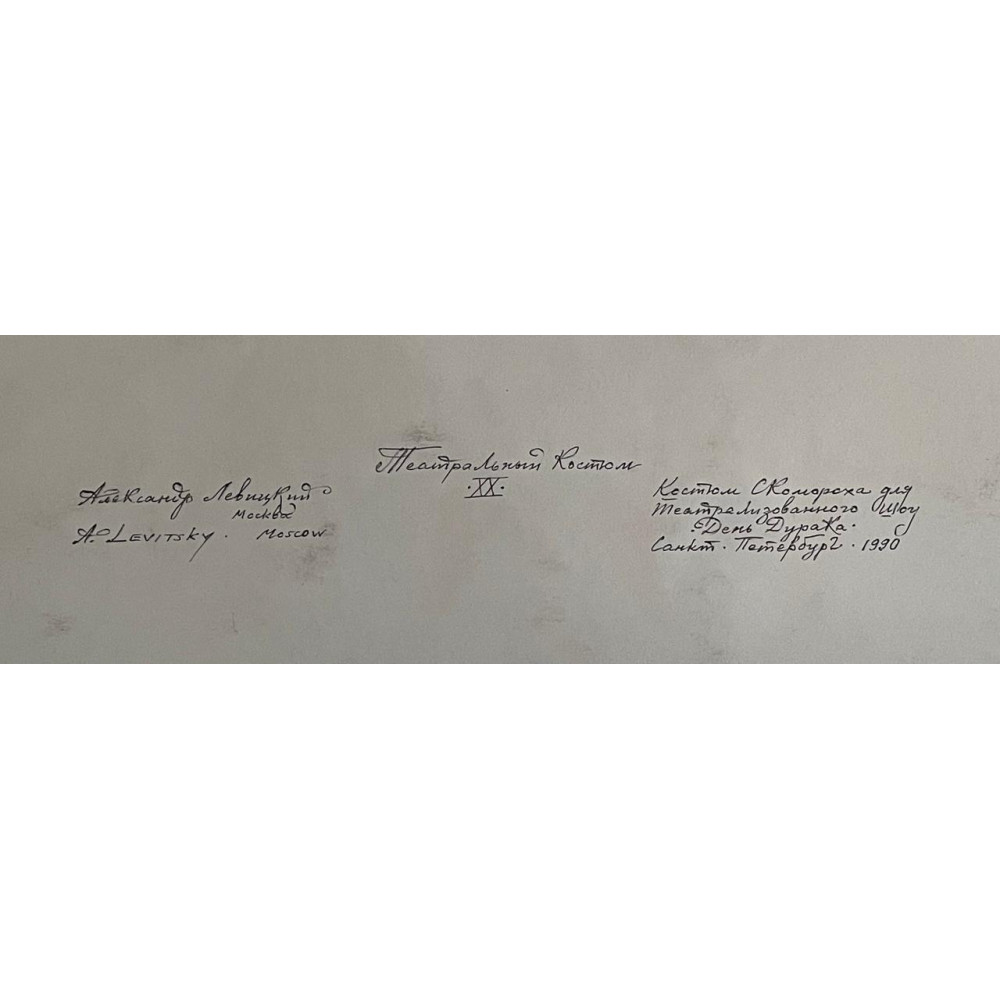 Театральный Костюм
·XX·
Александр Левицкий
Москва
A. LEVITSKY. MOSCOW
Костюм Скомороха для
Театрализованного Шоу
·День Дурака·
Санкт·Петербург·1990